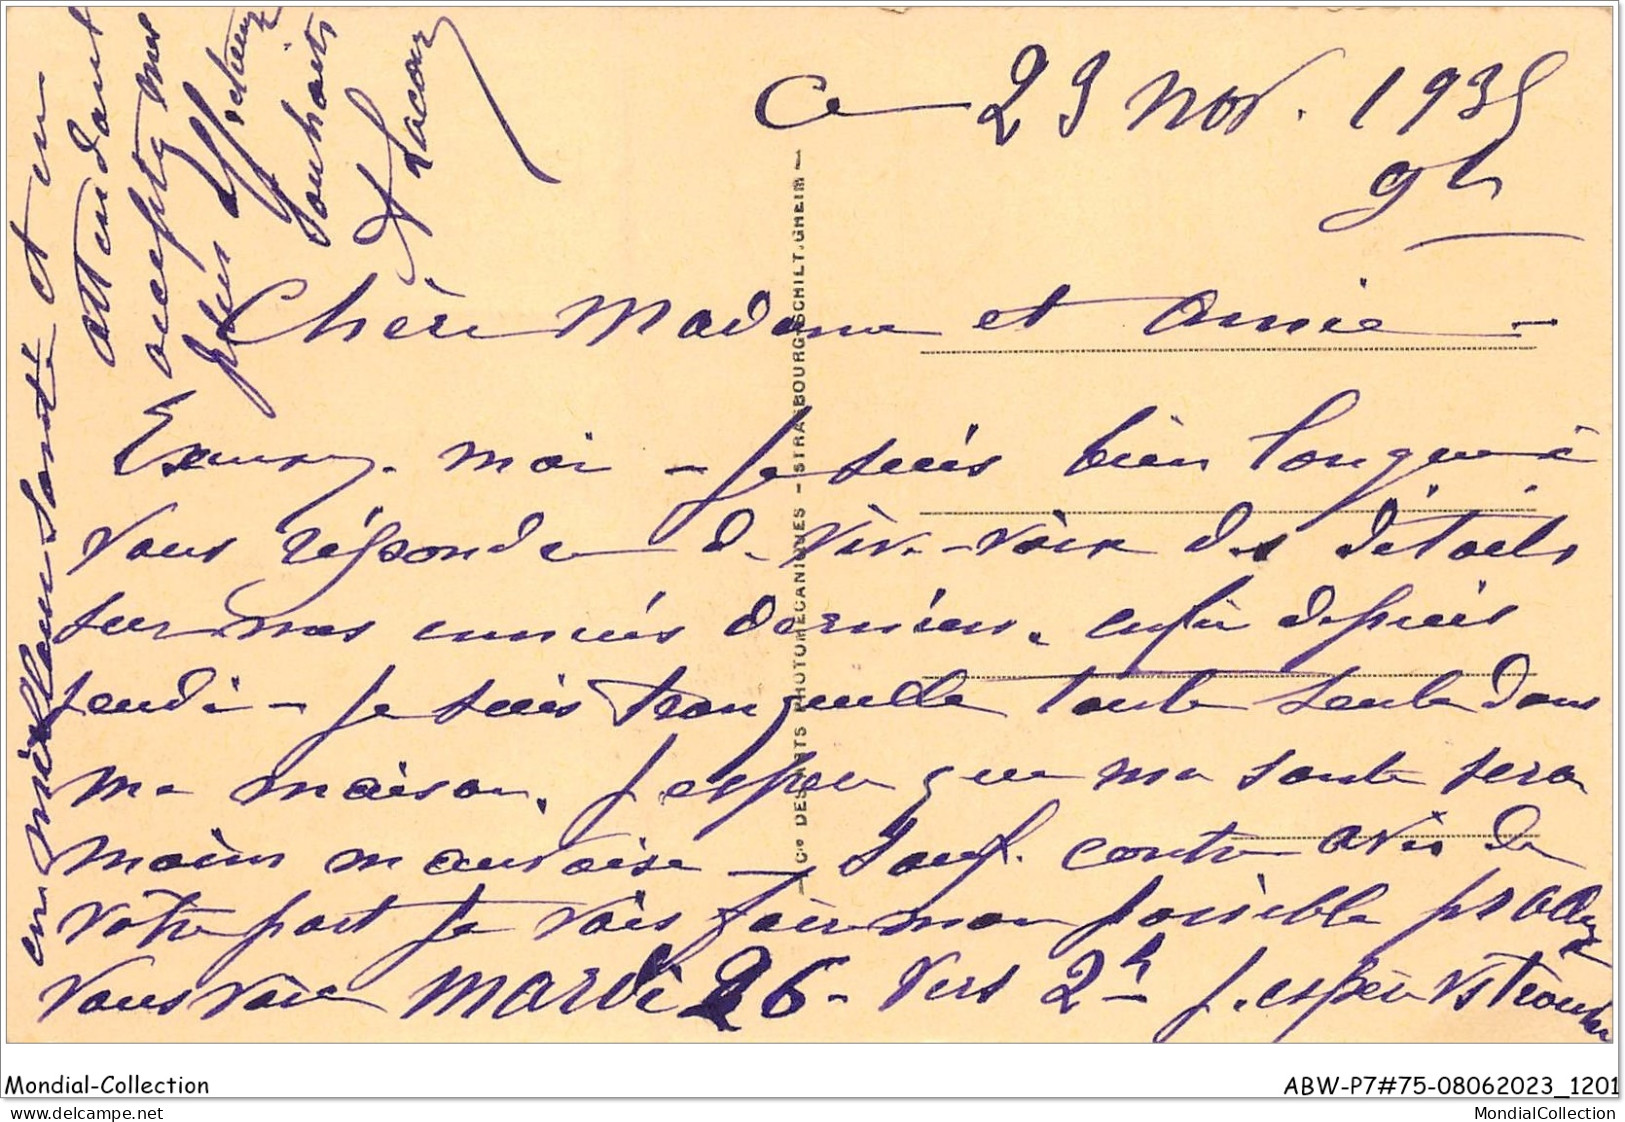 Ce 23 Nov. 1935
9h
Chère Madame et Amie -
Excusez-moi - Je suis bien longue à
vous répondre de vive-voix des détails
sur mes ennuis derniers. enfin depuis
Jeudi - Je suis tranquille toute seule dans
ma maison. J'espère que ma santé sera
moins mauvaise - Sauf contre avis de
votre part Je vais faire mon possible pr aller
vous voir Mardi 26 - Vers 2h - J'espère vs trouver
en meilleure santé et en
attendant
acceptez mes
plus affectueux
Souhaits
A Lacour
Cie DES ARTS PHOTOMECANIQUES - STRASBOURG-SCHILTIGHEIM -
Mondial-Collection
ABW-P7#75-08062023_1201
Mondial-Collection
MondialCollection